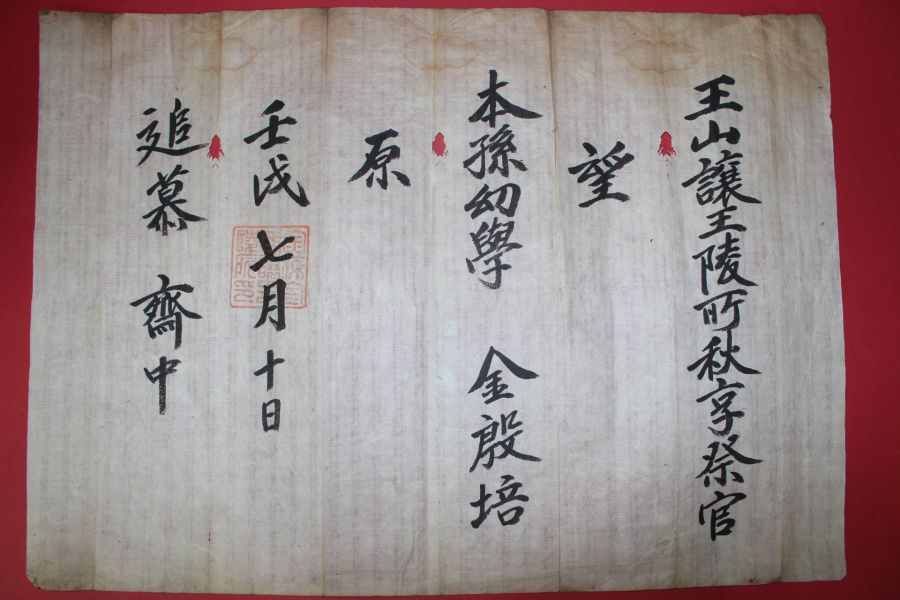 王山讓王陵所秋享祭官
望
本孫幼學 金殷培
原
壬戌 七月十日
追慕 齋中